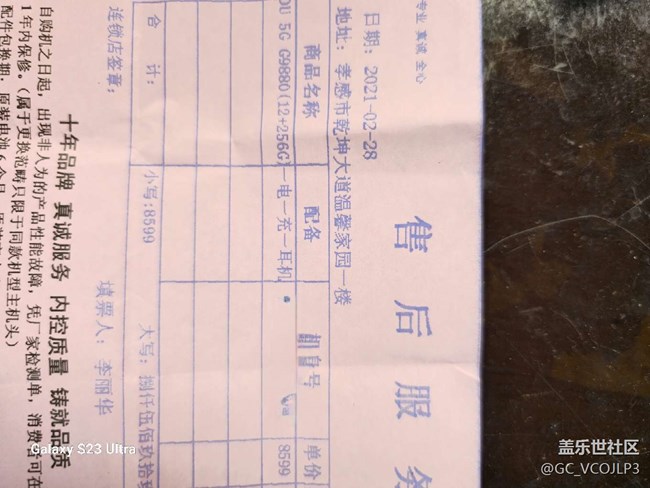 专业 真诚 全心
售后服务
日期: 2021-02-28
地址: 孝感市乾坤大道温馨家园一楼
商品名称 配备 机身号 单价
DU 5G G9880(12+256G) 一电一充一耳机 8599
合计: 小写:8599 大写: 捌仟伍佰玖拾玖
连锁店签章: 填票人: 李丽华
十年品牌 真诚服务 内控质量 铸就品质
自购机之日起,出现非人为的产品性能故障,凭厂家检测单,消费者可在
1年内保修。(属于更换范畴只限于同款机型主机头)
配件包换期:原装电池6个月
Galaxy S23 Ultra
盖乐世社区
@GC_VCOJLP3